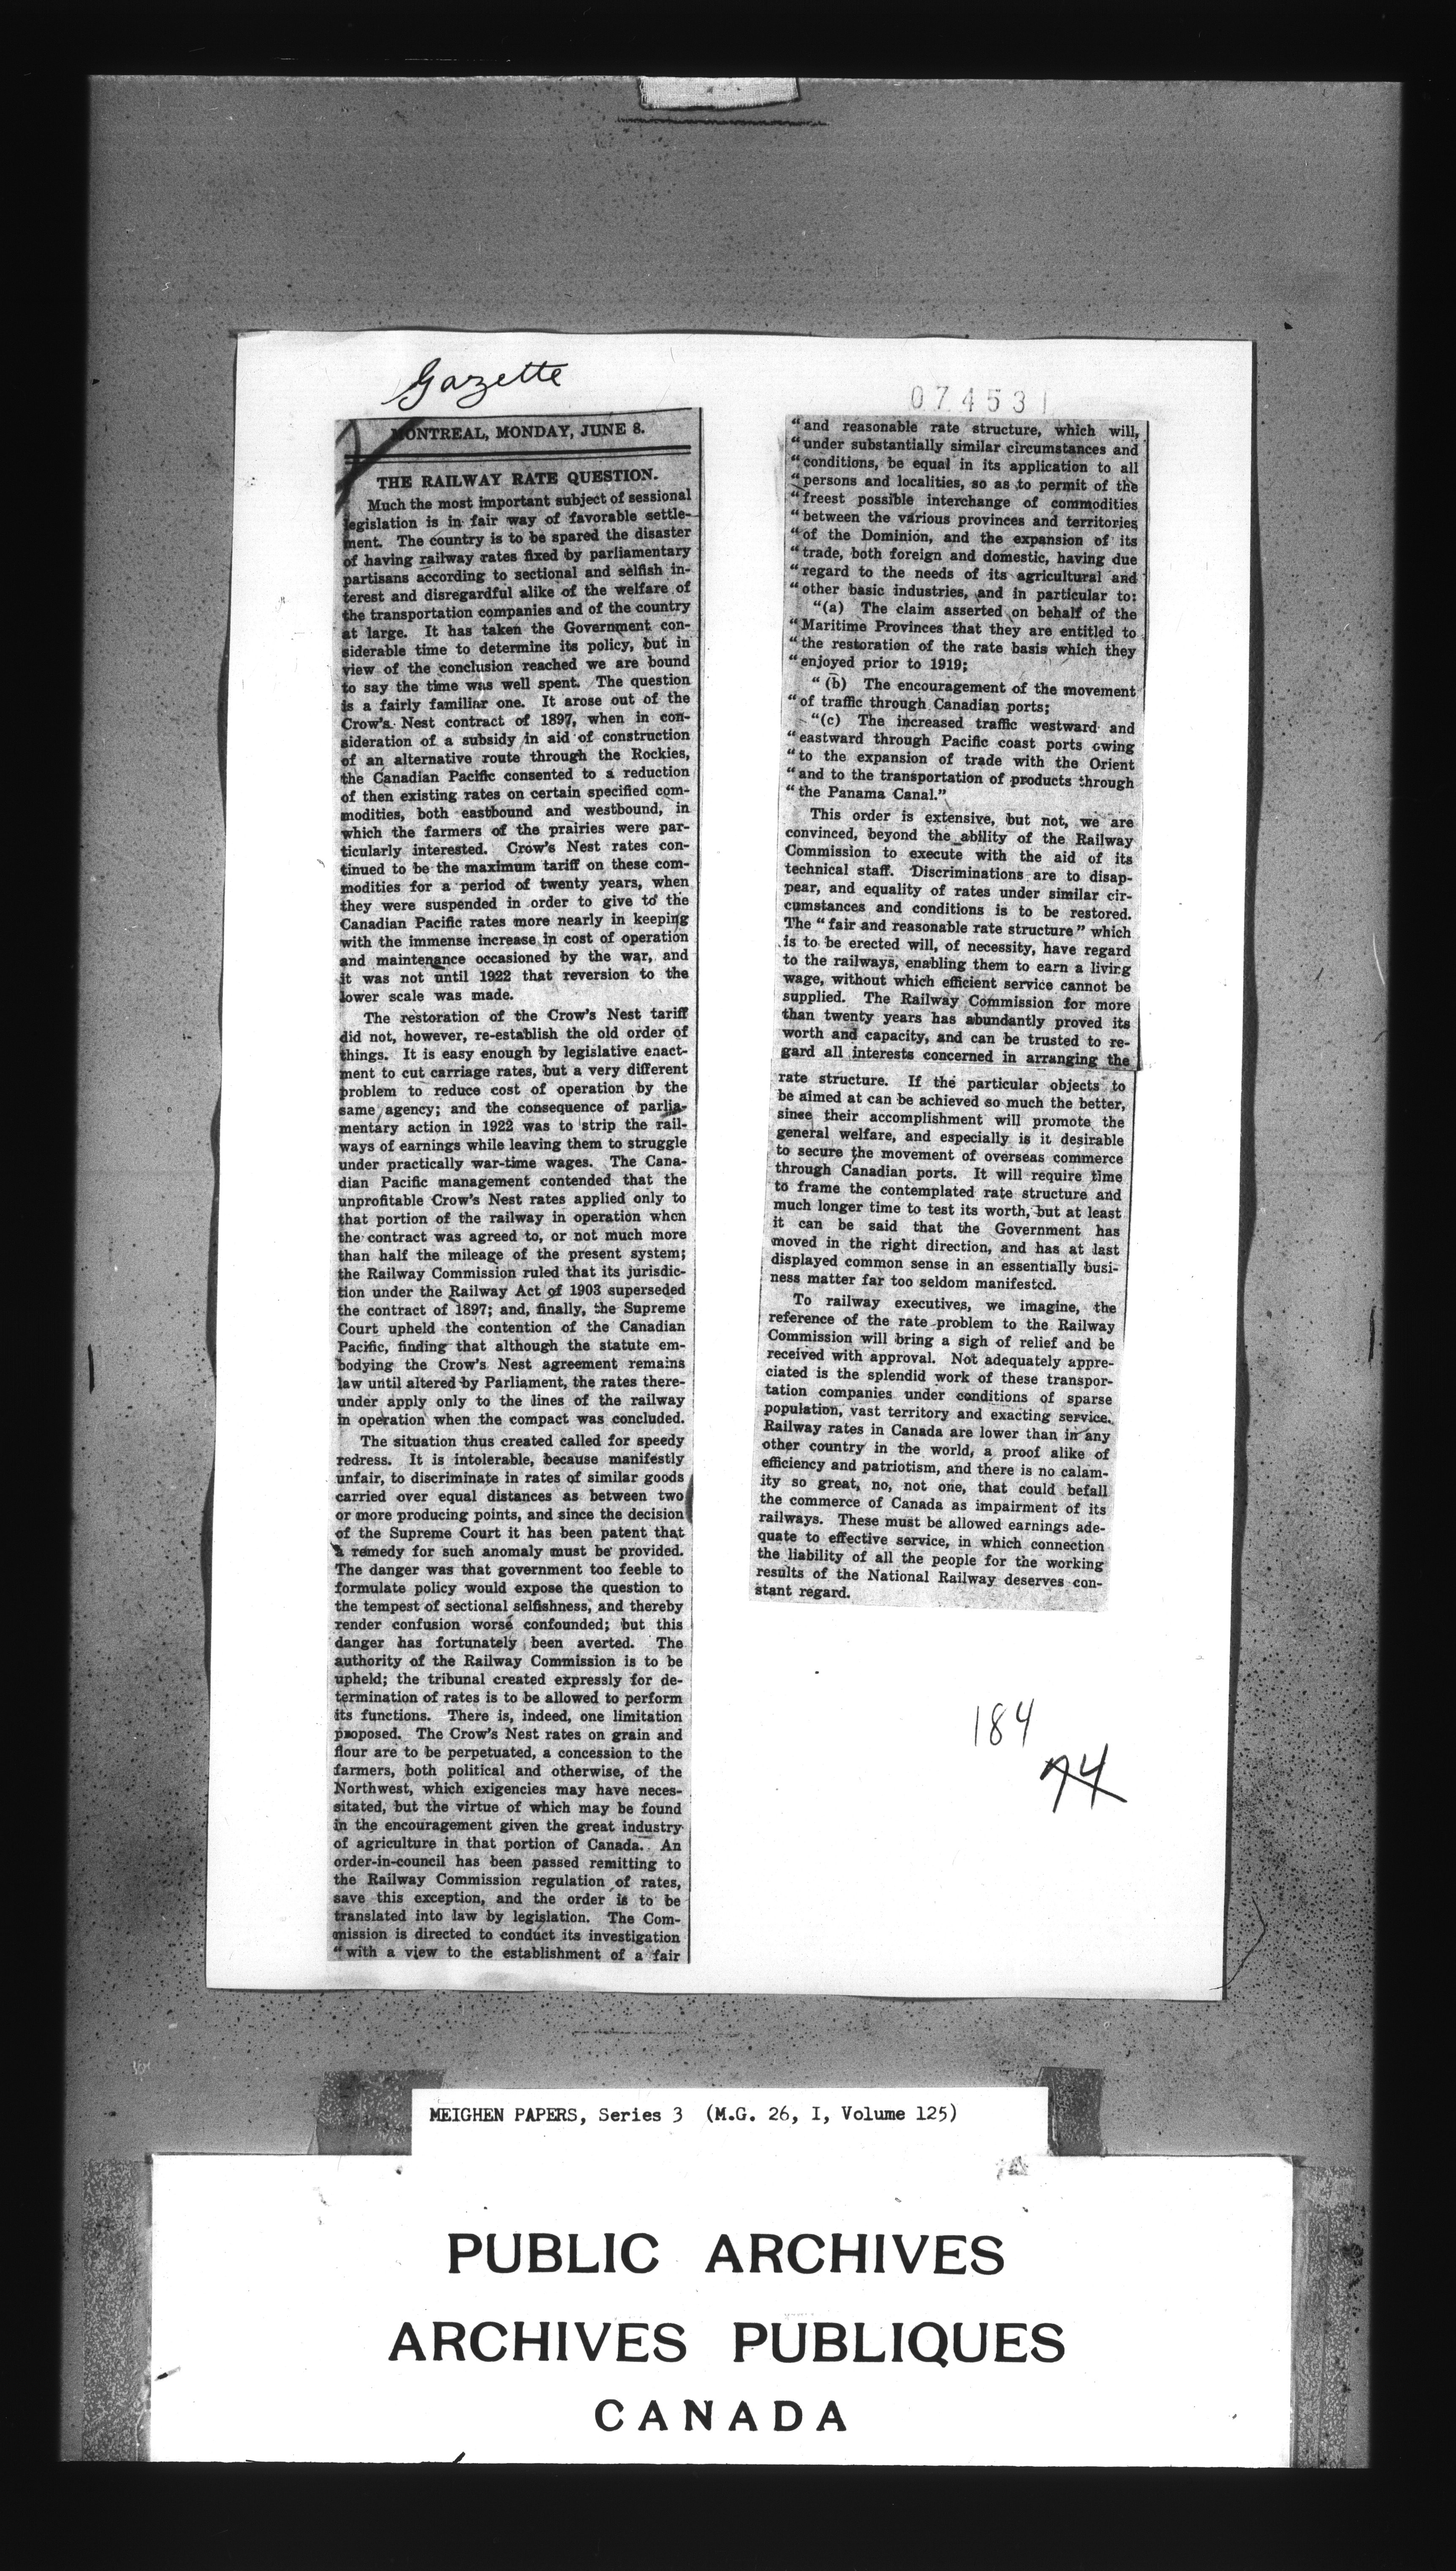 Gazette
074531
MONTREAL, MONDAY, JUNE 8.
THE RAILWAY RATE QUESTION.
Much the most important subject of sessional
legislation is in fair way of favorable settle-
ment. The country is to be spared the disaster
of having railway rates fixed by parliamentary
partisans according to sectional and selfish in-
terest and disregardful alike of the welfare of
the transportation companies and of the country
at large. It has taken the Government con-
siderable time to determine its policy, but in
view of the conclusion reached we are bound
to say the time was well spent. The question
is a fairly familiar one. It arose out of the
Crow's Nest contract of 1897, when in con-
sideration of a subsidy in aid of construction
of an alternative route through the Rockies,
the Canadian Pacific consented to a reduction
of then existing rates on certain specified com-
modities, both eastbound and westbound, in
which the farmers of the prairies were par-
ticularly interested. Crow's Nest rates con-
tinued to be the maximum tariff on these com-
modities for a period of twenty years, when
they were suspended in order to give to the
Canadian Pacific rates more nearly in keeping
with the immense increase in cost of operation
and maintenance occasioned by the war, and
it was not until 1922 that reversion to the
lower scale was made.
The restoration of the Crow's Nest tariff
did not, however, re-establish the old order of
things. It is easy enough by legislative enact-
ment to cut carriage rates, but a very different
problem to reduce cost of operation by the
same agency; and the consequence of parlia-
mentary action in 1922 was to strip the rail-
ways of earnings while leaving them to struggle
under practically war-time wages. The Cana-
dian Pacific management contended that the
unprofitable Crow's Nest rates applied only to
that portion of the railway in operation when
the contract was agreed to, or not much more
than half the mileage of the present system;
the Railway Commission ruled that its jurisdic-
tion under the Railway Act of 1903 superseded
the contract of 1897; and, finally, the Supreme
Court upheld the contention of the Canadian
Pacific, finding that although the statute em-
bodying the Crow's Nest agreement remains
law until altered by Parliament, the rates there-
under apply only to the lines of the railway
in operation when the compact was concluded.
The situation thus created called for speedy
redress. It is intolerable, because manifestly
unfair, to discriminate in rates of similar goods
carried over equal distances as between two
or more producing points, and since the decision
of the Supreme Court it has been patent that
a remedy for such anomaly must be provided.
The danger was that government too feeble to
formulate policy would expose the question to
the tempest of sectional selfishness, and thereby
render confusion worse confounded; but this
danger has fortunately been averted. The
authority of the Railway Commission is to be
upheld; the tribunal created expressly for de-
termination of rates is to be allowed to perform
its functions. There is, indeed, one limitation
proposed. The Crow's Nest rates on grain and
flour are to be perpetuated, a concession to the
farmers, both political and otherwise, of the
Northwest, which exigencies may have neces-
sitated, but the virtue of which may be found
in the encouragement given the great industry
of agriculture in that portion of Canada. An
order-in-council has been passed remitting to
the Railway Commission regulation of rates,
save this exception, and the order is to be
translated into law by legislation. The Com-
mission is directed to conduct its investigation
"with a view to the establishment of a fair
"and reasonable rate structure, which will,
"under substantially similar circumstances and
"conditions, be equal in its application to all
"persons and localities, so as to permit of the
"freest possible interchange of commodities
"between the various provinces and territories
"of the Dominion, and the expansion of its
"trade, both foreign and domestic, having due
"regard to the needs of its agricultural and
"other basic industries, and in particular to:
"(a) The claim asserted on behalf of the
"Maritime Provinces that they are entitled to
"the restoration of the rate basis which they
"enjoyed prior to 1919;
"(b) The encouragement of the movement
"of traffic through Canadian ports;
"(c) The increased traffic westward and
"eastward through Pacific coast ports owing
"to the expansion of trade with the Orient
"and to the transportation of products through
"the Panama Canal."
This order is extensive, but not, we are
convinced, beyond the ability of the Railway
Commission to execute with the aid of its
technical staff. Discriminations are to disap-
pear, and equality of rates under similar cir-
cumstances and conditions is to be restored.
The "fair and reasonable rate structure" which
is to be erected will, of necessity, have regard
to the railways, enabling them to earn a living
wage, without which efficient service cannot be
supplied. The Railway Commission for more
than twenty years has abundantly proved its
worth and capacity, and can be trusted to re-
gard all interests concerned in arranging the
rate structure. If the particular objects to
be aimed at can be achieved so much the better,
since their accomplishment will promote the
general welfare, and especially is it desirable
to secure the movement of overseas commerce
through Canadian ports. It will require time
to frame the contemplated rate structure and
much longer time to test its worth, but at least
it can be said that the Government has
moved in the right direction, and has at last
displayed common sense in an essentially busi-
ness matter far too seldom manifested.
To railway executives, we imagine, the
reference of the rate problem to the Railway
Commission will bring a sigh of relief and be
received with approval. Not adequately appre-
ciated is the splendid work of these transpor-
tation companies under conditions of sparse
population, vast territory and exacting service.
Railway rates in Canada are lower than in any
other country in the world, a proof alike of
efficiency and patriotism, and there is no calam-
ity so great, no, not one, that could befall
the commerce of Canada as impairment of its
railways. These must be allowed earnings ade-
quate to effective service, in which connection
the liability of all the people for the working
results of the National Railway deserves con-
stant regard.
184
74
MEIGHEN PAPERS, Series 3 (M.G. 26, I, Volume 125)
PUBLIC ARCHIVES
ARCHIVES PUBLIQUES
CANADA